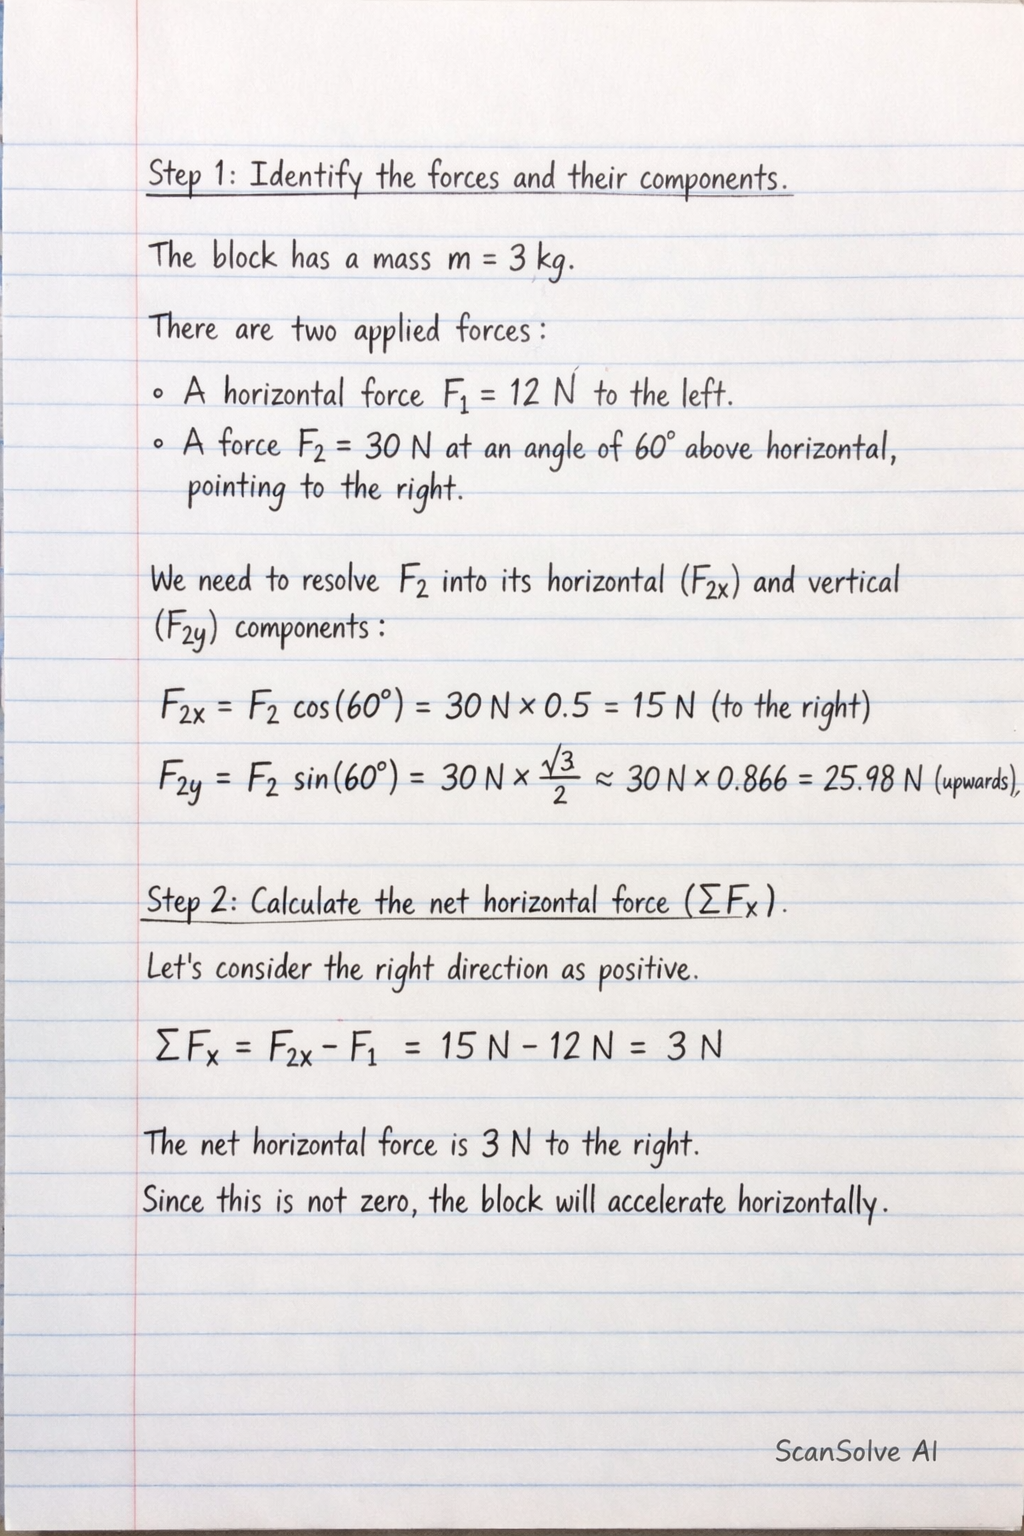 Step 1: Identify the forces and their components.
The block has a mass m = 3 kg.
There are two applied forces:
∘ A horizontal force F₁ = 12 N to the left.
∘ A force F₂ = 30 N at an angle of 60° above horizontal,
pointing to the right.
We need to resolve F₂ into its horizontal (F₂ₓ) and vertical
(F₂y) components:
F₂ₓ = F₂ cos(60°) = 30 N × 0.5 = 15 N (to the right)
F₂y = F₂ sin(60°) = 30 N × √3/2 ≈ 30 N × 0.866 = 25.98 N (upwards),
Step 2: Calculate the net horizontal force (ΣFₓ).
Let's consider the right direction as positive.
ΣFₓ = F₂ₓ − F₁ = 15 N − 12 N = 3 N
The net horizontal force is 3 N to the right.
Since this is not zero, the block will accelerate horizontally.
ScanSolve AI